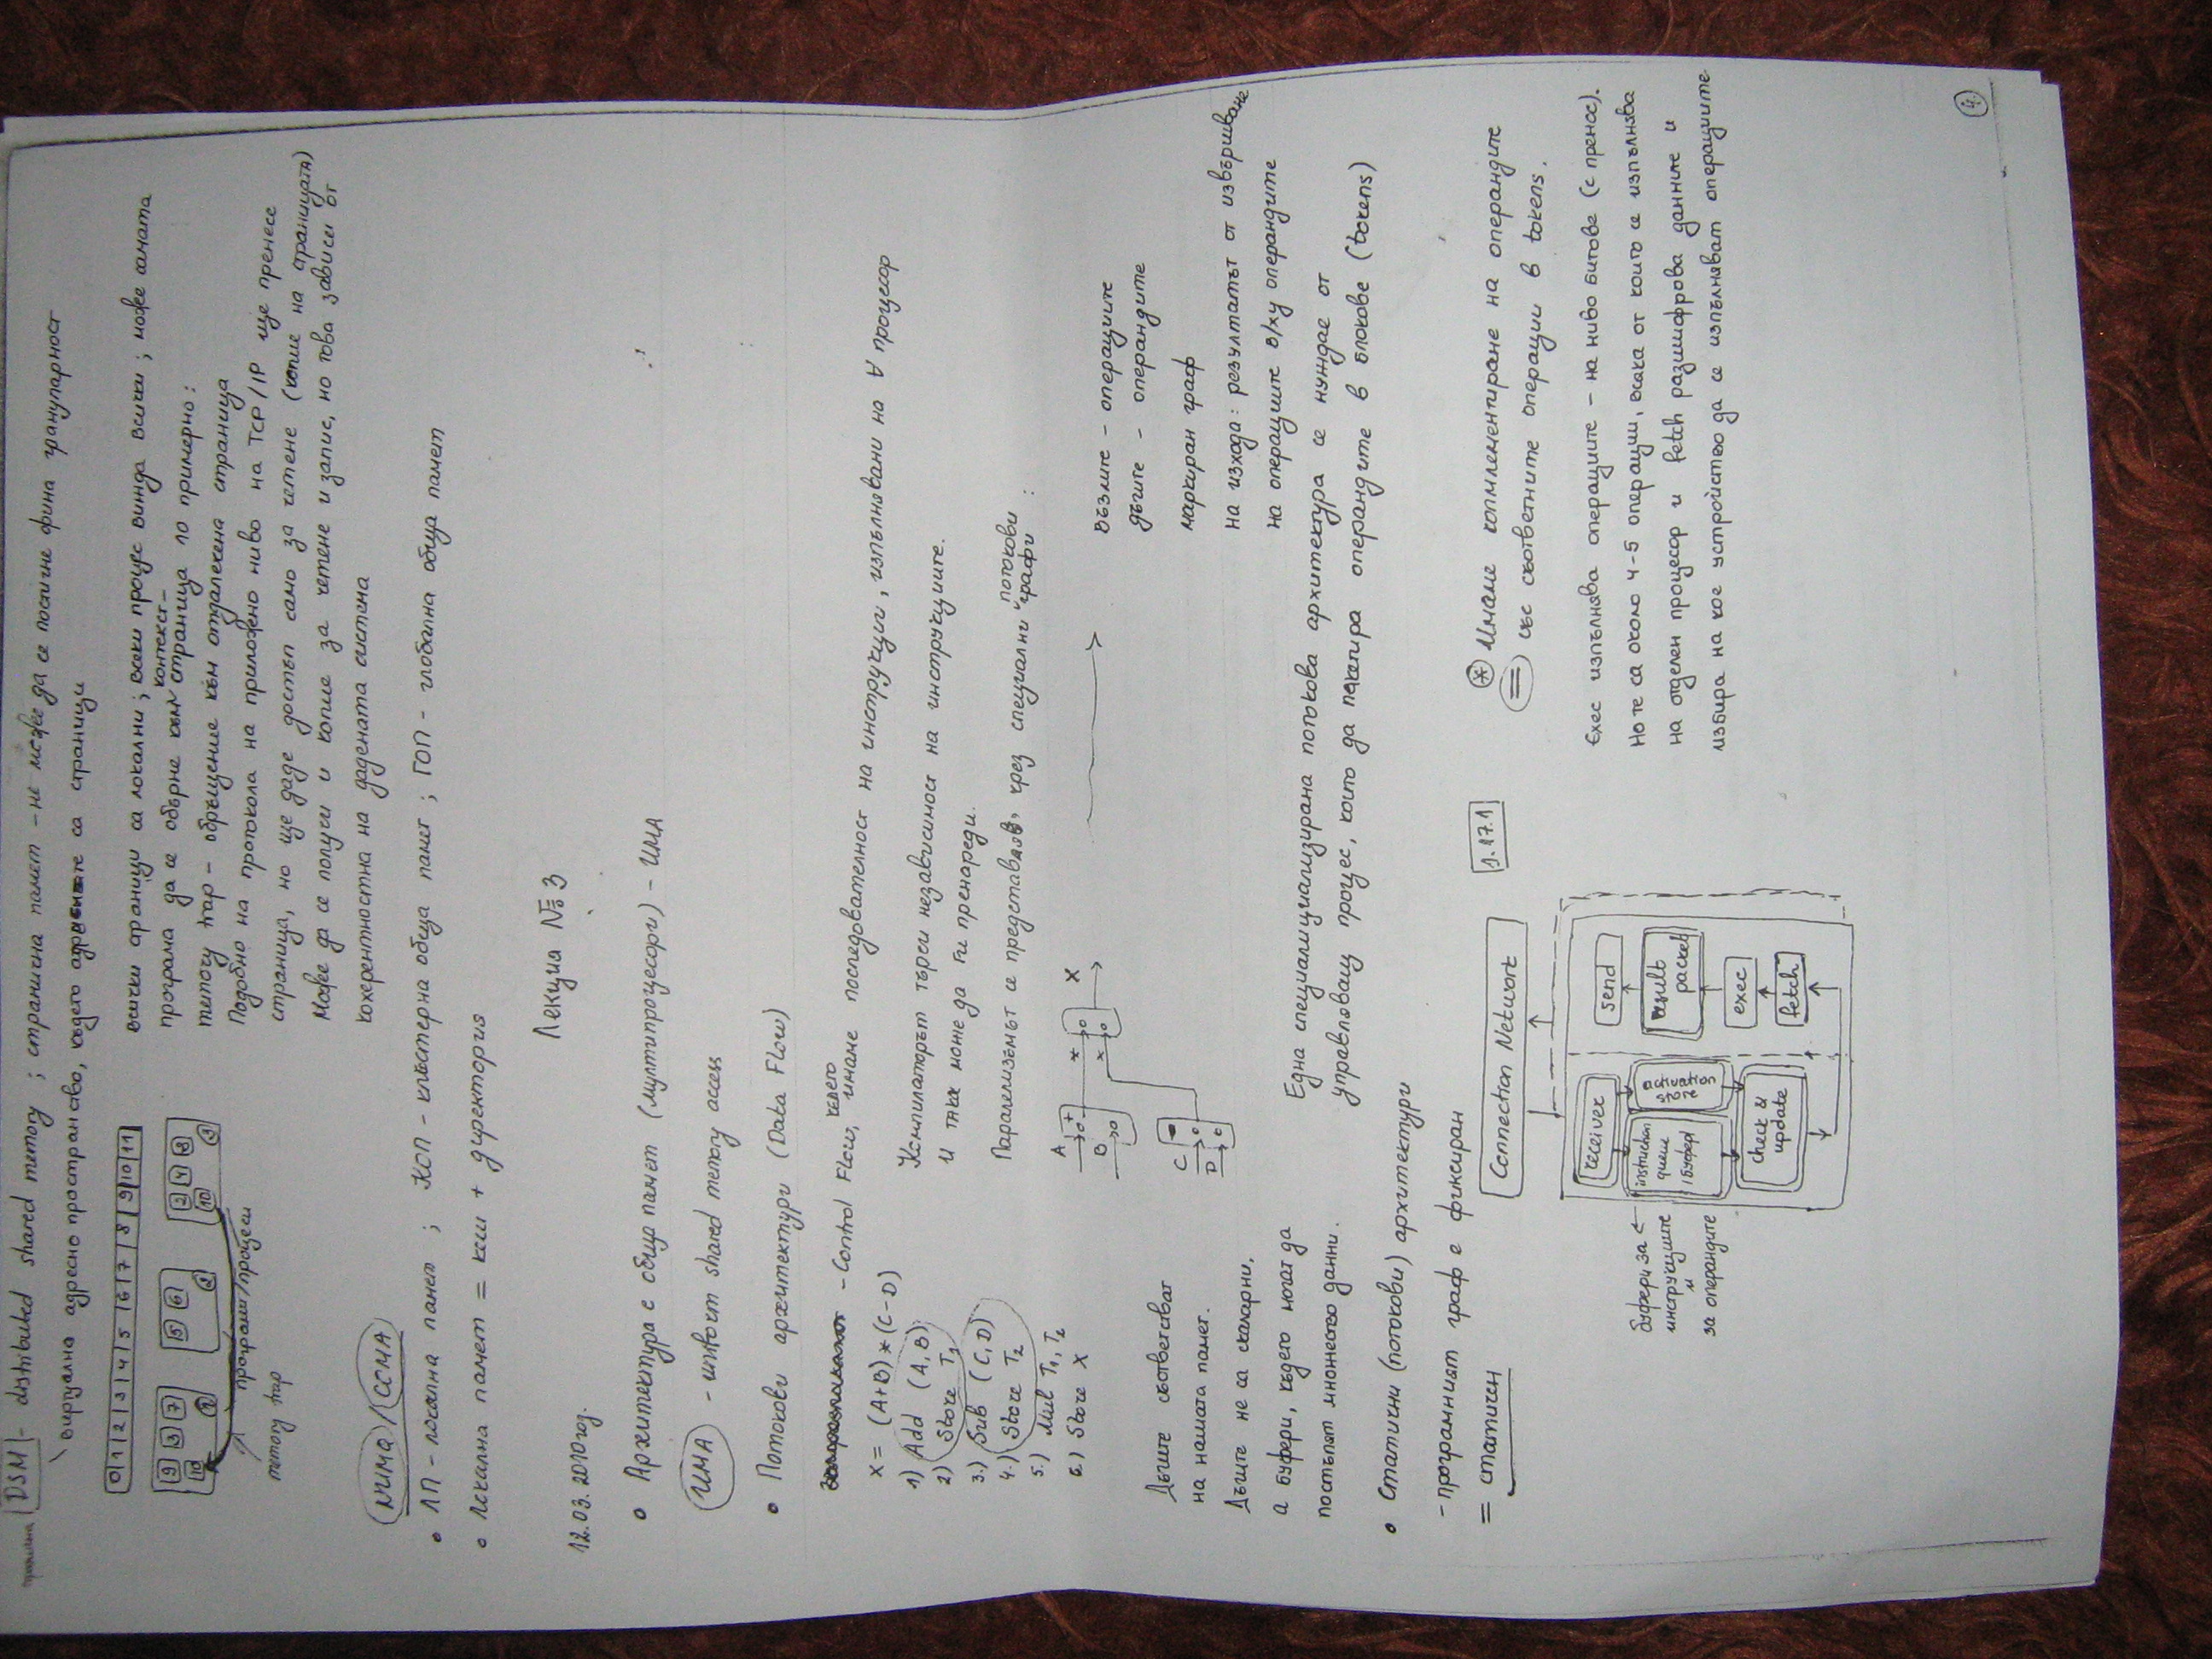 DSM - distributed shared memory ; странична памет - не може да се постигне фина гранулярност
виртуално адресно пространство, където адресите са страници
0 1 2 3 4 5 6 7 8 9 10 11
9 3 7
10 1
5 6
2
2 4 8
10 3
програми/процеси
memory trap
всички страници са локални ; всеки процес вижда всички ; може самата
програма да се обърне към контекст-страница по примерно:
memory trap - обръщение към отдалечена страница
Подобно на протокола на приложено ниво на TCP/IP ще пренесе
страница, но ще даде достъп само за четене (копие на страницата)
Може да се получи и копие за четене и запис, но това зависи от
кохерентността на дадената система
NUMA / CCMA
• ЛП - локална памет ; КОП - клъстерна обща памет ; ГОП - глобална обща памет
• Локална памет = кеш + директория
Лекция № 3
12.03.2010 год.
• Архитектура с обща памет (мултипроцесори) - UMA
UMA - uniform shared memory access
• Потокови архитектури (Data Flow)
- Control Flow, където имаме последователност на инструкции, изпълнявани на ∀ процесор
X = (A+B) * (C-D)
1) Add (A, B)
2) Store T1
3.) Sub (C, D)
4.) Store T2
5.) Mul T1, T2
6.) Store X
Компилаторът търси независимост на инструкциите.
и така може да ги пренареди.
Паралелизмът се представя, чрез специални "потокови графи :
A
B
+
C
D
-
*
X
възлите - операциите
дъгите - операндите
маркиран граф
на изхода: резултатът от извършване
на операциите в/ху операндите
Дъгите съответстват
на нашата памет.
Дъгите не са скаларни,
а буфери, където могат да
постъпят множество данни.
Една специализирана потокова архитектура се нуждае от
управляващ процес, който да пакетира операндите в блокове (tokens)
• Статични (потокови) архитектури
- програмният граф е фиксиран
= статичен
Connection Network
1.17.1
receiver
instruction queue / буфер
activation store
check & update
send
result packet
exec
fetch
буфери за ←
инструкциите
и
за операндите
⊛ Имаме комплементиране на операндите
= със съответните операции в tokens.
Exec изпълнява операциите - на ниво битове (с пренос).
Но те са около 4-5 операции, всяка от които се изпълнява
на отделен процесор и fetch разшифрова данните и
избира на кое устройство да се изпълняват операциите
4.